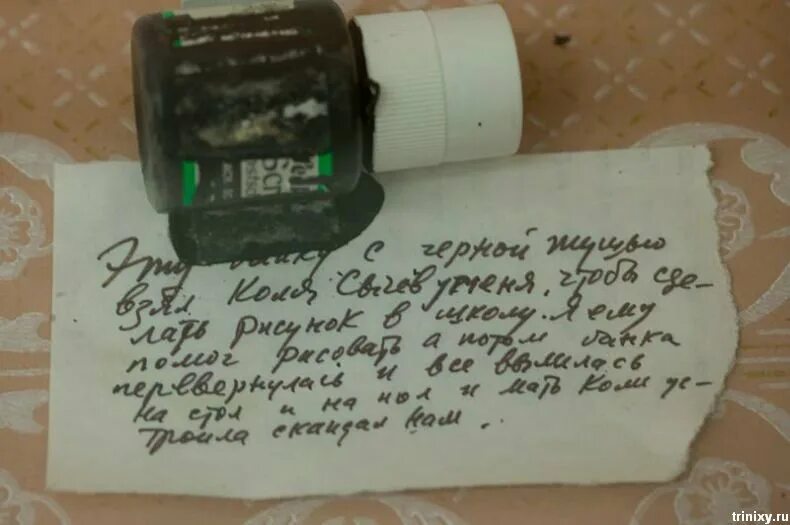 Эту банку с черной тушью
взял Коля Сычев у меня, чтобы сде-
лать рисунок в школу. Я ему
помог рисовать а потом банка
перевернулась и все вылилась
на стол и на пол и мать Коли ус-
троила скандал нам.
trinixy.ru